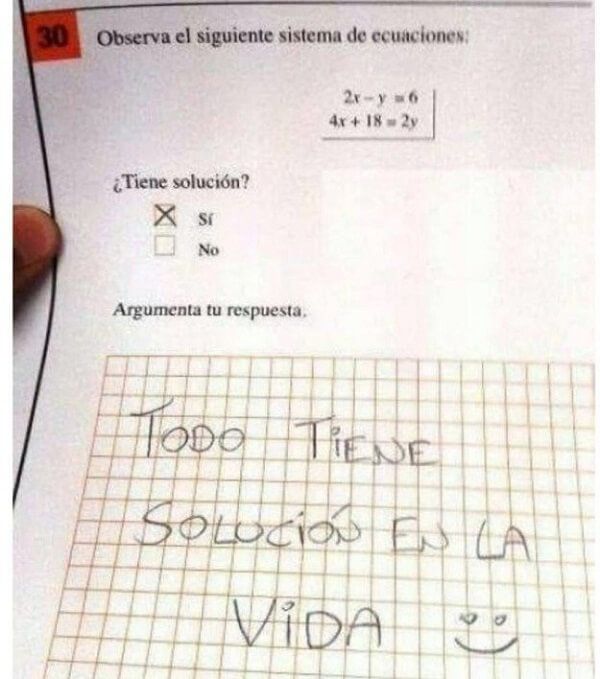 30 Observa el siguiente sistema de ecuaciones:
2x - y = 6
4x + 18 = 2y
¿Tiene solución?
Sí
No
Argumenta tu respuesta.
TODO TIENE
SOLUCIÓN EN LA
VIDA